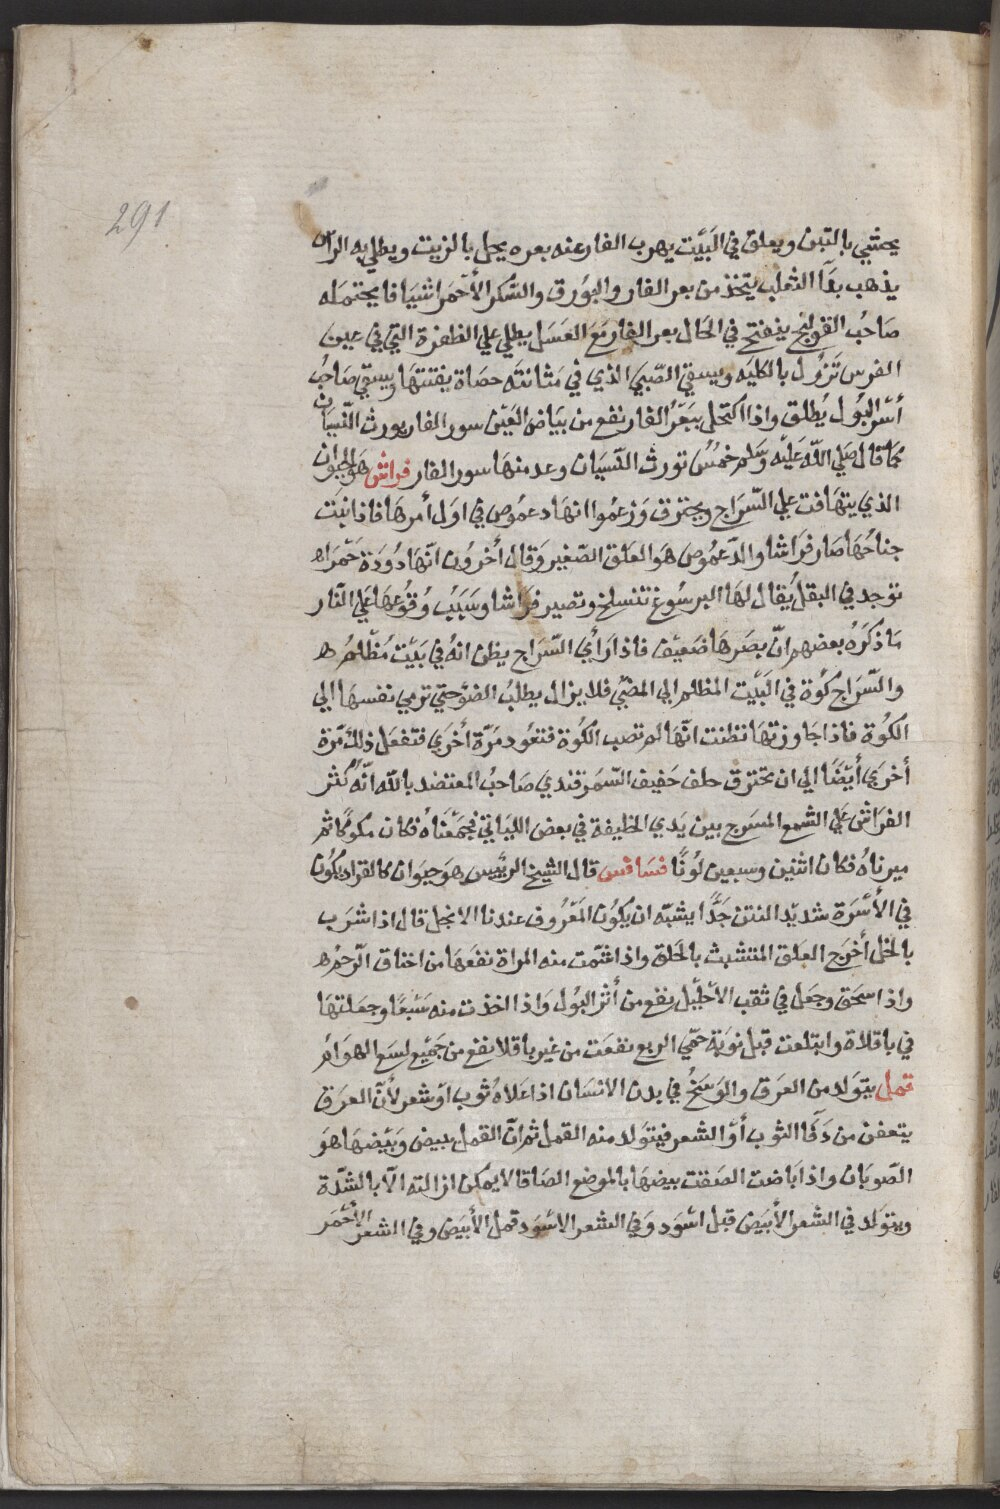 291
يحشي بالتبن ويعلق في البَيْت يهرب الفار عنه بعره يحل بالزيت ويطلي به الراس
يذهب بدآ الثعلب يتخذ من بعر الفار والبوُرق والسّكر الأحْمَر اشيَافا يحتملَه
صَاحبُ القولنج ينفتح في الحَال بعر الفار مَع العَسَل يطلي علي الظفرة التي في عين
الفرس تَزوُل بالكليَه ويسقي الصّبي الذي في مَثانتَه حصَاة يفتتهَا ويسقي صَاحبُ
أسْر البُول يُطلق واذا اكتحل ببَعْر الفار نفع من بيَاض العَيْن سور الفار يورث النّسيَان
كمَا قال صَلي اللّه عَليْه وَسَلم خمسُ تورث النّسيَان وعد منهَا سور الفار فراش هَو الحيوان
الذي يتهَافت علي السّرَاج ويحترق وَزعمُوا انهَا دعمُوص في اوَل أمرهَا فاذا نبَت
جناحُهَا صَار فرَاشا والدّعمُوص هَو العلق الصّغير وَقال أخروُن انّهَا دُودَة حَمْراه
توجد في البقل يُقال لهَا اليرسُوغ تنسلخ وتصير فرَاشا وسَبَبُ وُقوُعهَا عَلي النّار
مَا ذكرَهُ بعضهم انّ بصَرهَا ضَعيْف فاذا رَأي السّرَاج يظن انهُ في بَيْت مُظلم ه
والسّرَاج كُوَة في البَيْت المظلم الي المضيْ فلا يزال يطلبُ الضوَ حتي ترمي نفسهَا الي
الكوُة فاذا جَاوزتهَا نظنت انّهَا لم تصب الكُوة فتعُود مَرّة أخرَي فتفعَل ذلكَ مَرّة
أخرَي أيْضًا الي ان تحترق حلف حَفيف السّمَرقندي صَاحبُ المعتضد باللّه انّهُ كثر
الفرَاش عَلي الشمع المسَرج بين يَدي الخليفة في بعض الليَاني فجمَعْنَاهُ فكان مكوكًا ثم
ميزناهُ فكان اثنين وسبعين لُونًا فسَافس قال الشيخ الريّيس وهوَ حيوَان كالقراد يكوُن
في الأسّرَة شديْد النتن جدًّا يشبه ان يكوُن المَعْرُوف عندنا الانجل قال اذا شرَب
بالخل أخْرَج العلق المتشبث بالحَلق واذا شمت منه المراة نفعَهَا من اختاق الرّحم ه
واذا سحَق وجعَل في ثقب الأحْليْل نفع من أثر البُول وَاذا اخذت منه سَبْعًا وجعَلتهَا
في باقلاة وابتلعت قبل نوبَة حمّي الربع نفعَت من غير باقلا نفع من جَميْع لسَع الهوَامْ
قمل يتوَلد من العرَق والوَسَخْ في بدن الانسَان اذا علاهُ ثوب أو شعر لأنّ العرَق
يتعفن من دَفا الثوب أوْ الشعر فيتولد منه القمل ثم انّ القمل يبيض وَبَيْضهَا هوَ
الصّوبَان واذا باضت الصَقت بيضهَا بالموضع الصَاقا لا يمكن ازالته الاّ بالشدّة
ويتوَلد في الشعر الأبيَض قبل اسْوَد وَفي الشعر الاسْوَد قمل الأبيَض وفي الشعر الأحْمَر